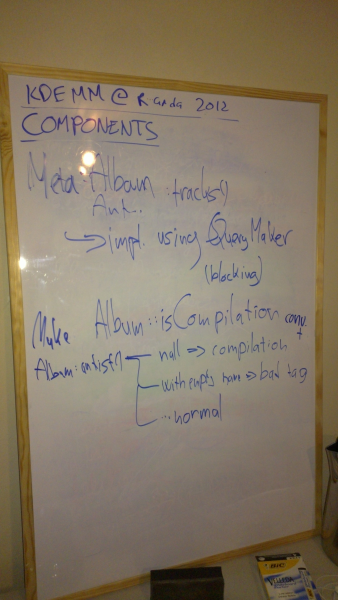 KDEMM @ Randa 2012
COMPONENTS
Meta::Album::tracks()
impl. using QueryMaker
(blocking)
Make Album::isCompilation
Album::artist() null => compilation
with empty name => bad tag
... normal
BIC